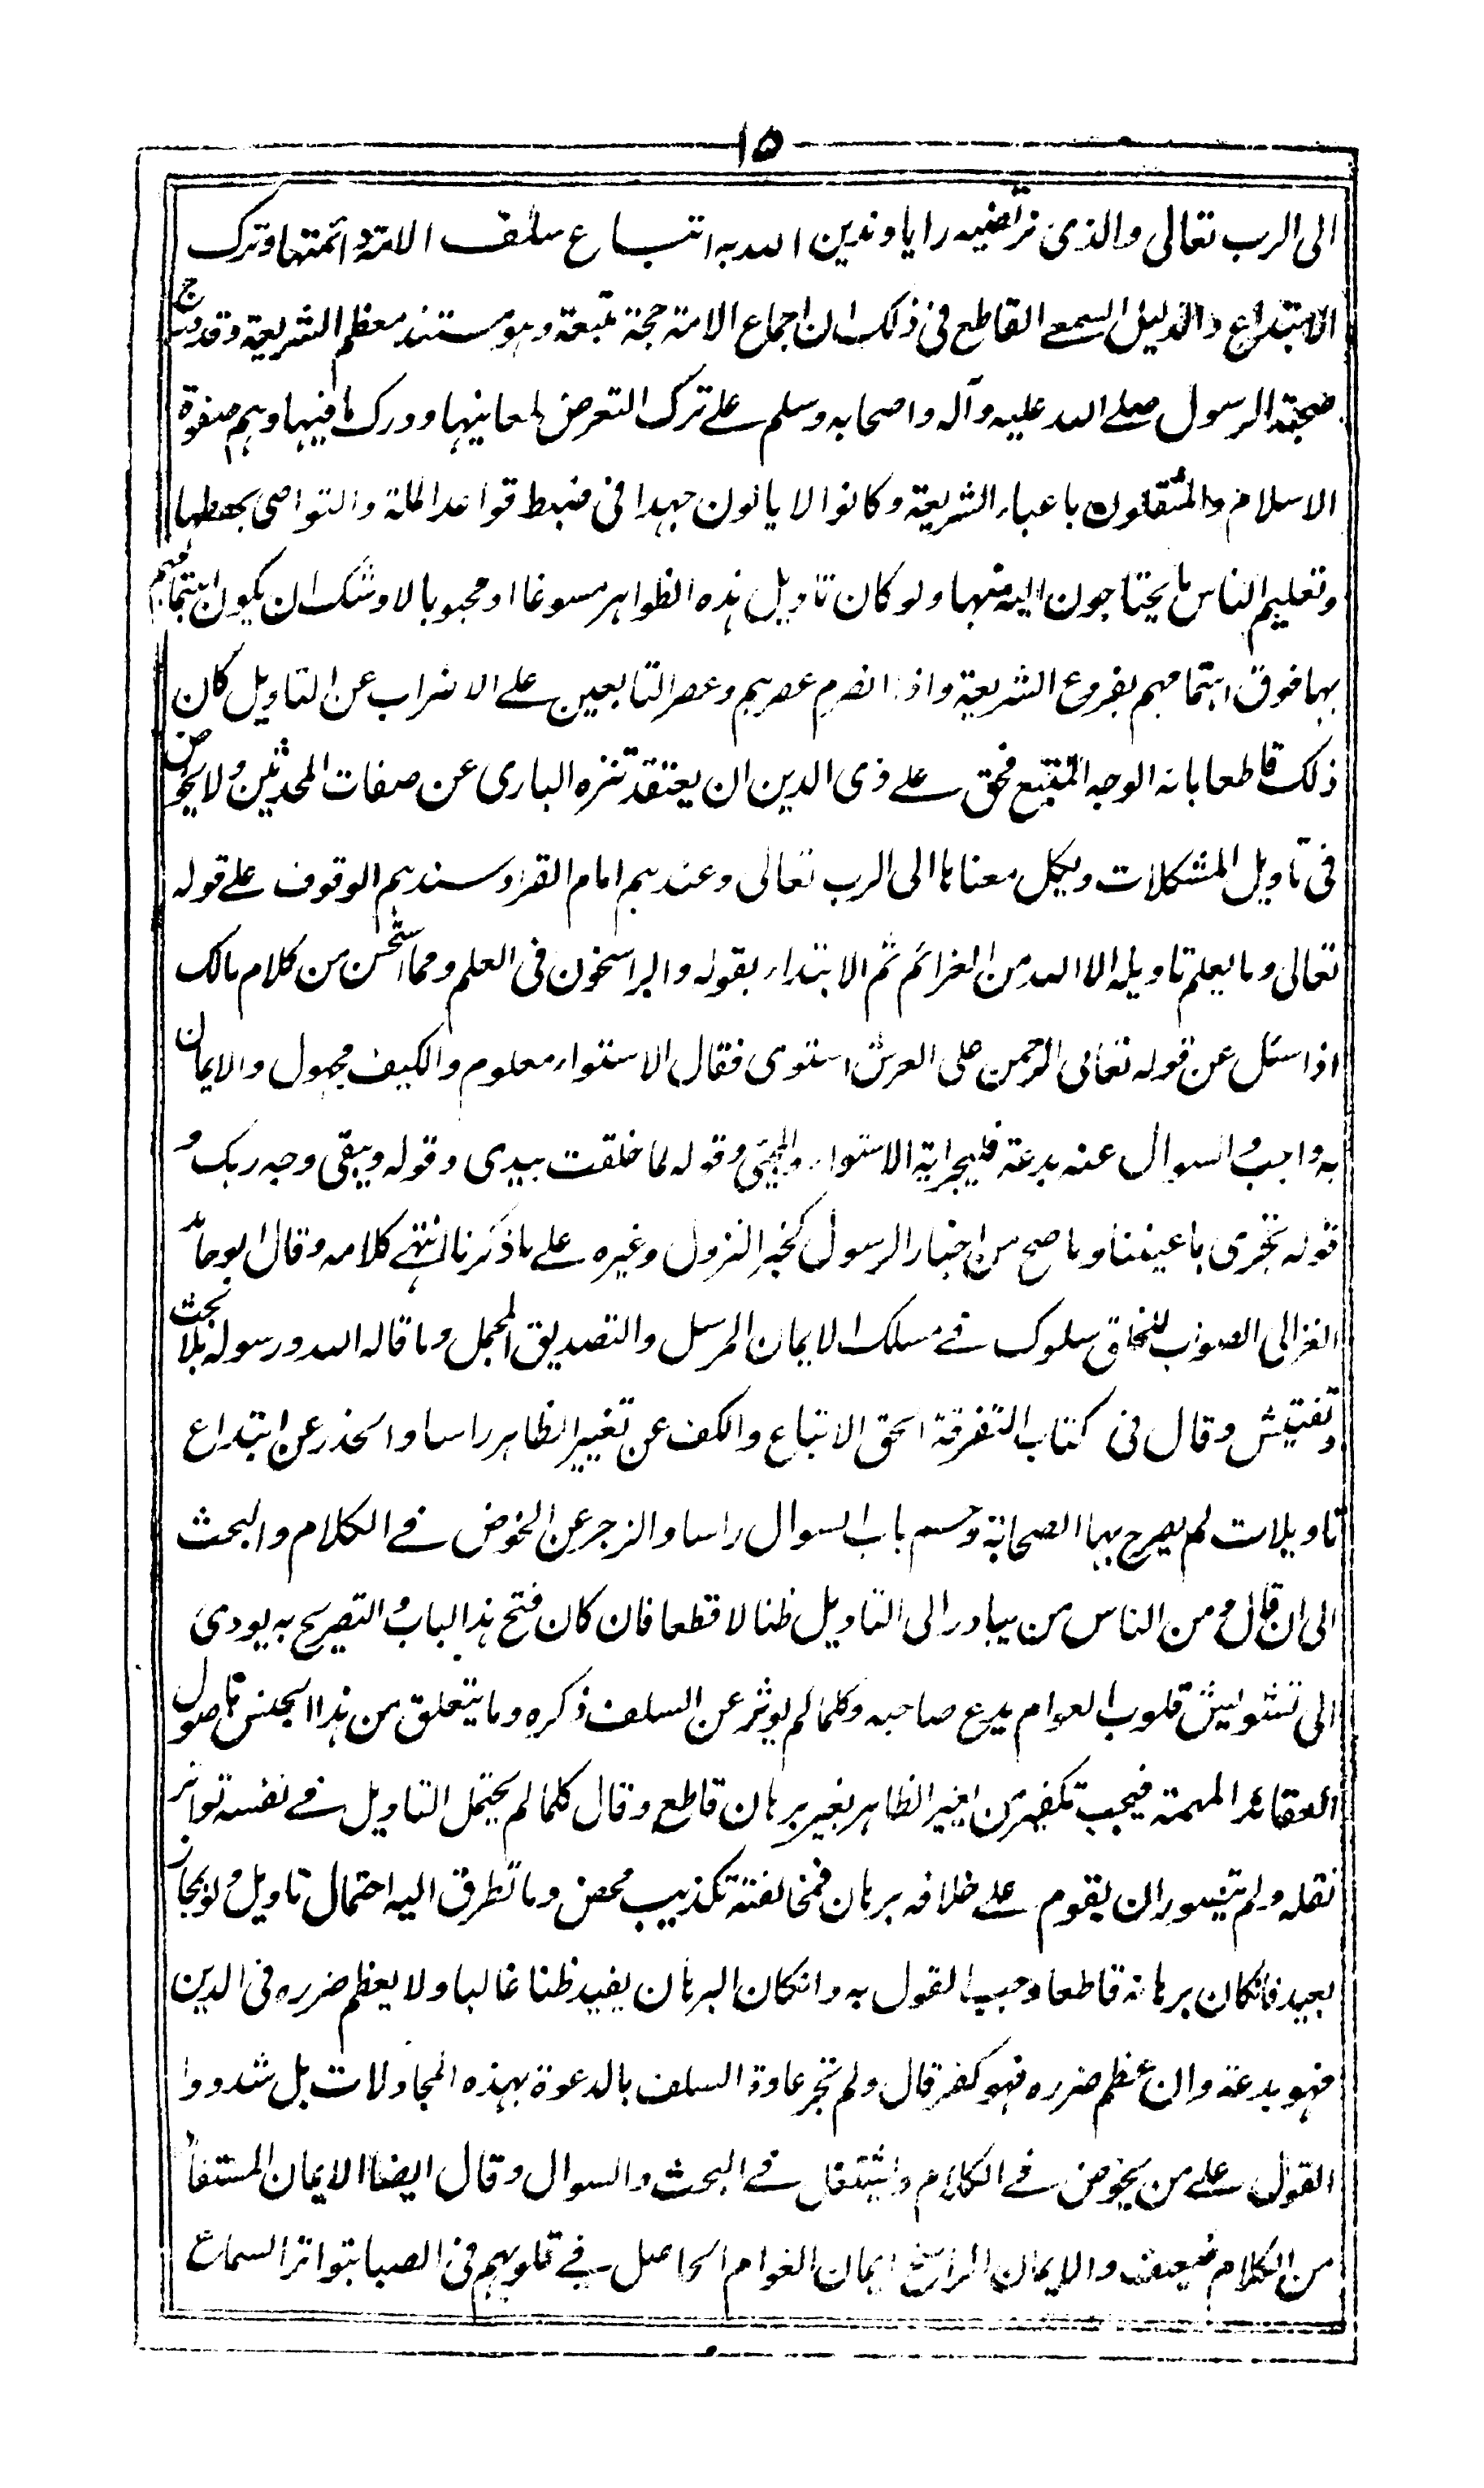 ١٥
الى الرب تعالى والذى نرتضيه رايا وندين الله به اتباع سلف الامة وائمتها وترك
الابتداع والدليل السمعے القاطع فى ذلك ان اجماع الامة حجة متبعة وہو مستند معظم الشريعة وقد درج
صحبة الرسول صلے الله عليه وآله واصحابه وسلم علے ترك التعرض لمعانيہا ودرك ما فيہا وہم صفوة
الاسلام والمثقلون باعباء الشريعة وكانوا لا يالون جہدا فى ضبط قواعد الملة والتواصى بحفظہا
وتعليم الناس ما يحتاجون اليه منہا ولو كان تاويل ہذه الظواہر مسوغا او محبوبا لاوشك ان يكون اہتمامہم
بہا فوق اہتمامہم بفروع الشريعة واذا انصرم عصرہم وعصر التابعين علے الاضراب عن التاويل كان
ذلك قاطعا بانه الوجه المتبع فحق علے ذى الدين ان يعتقد تنزه البارى عن صفات المحدثين ولا يخوض
فى تاويل المشكلات ويكل معناہا الى الرب تعالى وعندہم امام القراء وسندہم الوقوف علے قوله
تعالى وما يعلم تاويله الا الله من العزائم ثم الابتداء بقوله والراسخون فى العلم ومما استحسن من كلام مالك
اذا سئل عن قوله تعالى الرحمن على العرش استوى فقال الاستواء معلوم والكيف مجہول والايمان
به واجب والسوال عنه بدعة فليجر اية الاستواء والمجيئ وقوله لما خلقت بيدى وقوله ويبقى وجه ربك و
قوله تجرى باعيننا وما صح من اخبار الرسول كخبر النزول وغيره علے ما ذكرنا انتہے كلامه وقال ابو حامد
الغزالى الصواب للخلق سلوك فے مسلك الايمان المرسل والتصديق المجمل وما قاله الله ورسوله بلا بحث
وتفتيش وقال فى كتاب التفرقة الحق الاتباع والكف عن تغيير الظاہر راسا والحذر عن ابتداع
تاويلات لم يصرح بہا الصحابة وحسم باب السوال راسا والزجر عن الخوض فے الكلام والبحث
الى ان قال ومن الناس من يبادر الى التاويل ظنا لا قطعا فان كان فتح ہذا الباب والتصريح به يودى
الى تشويش قلوب العوام بدع صاحبه وكلما لم يوثر عن السلف ذكره وما يتعلق من ہذا الجنس باصول
العقائد المہمة فيجب تكفير من يغير الظاہر بغير برہان قاطع وقال كلما لم يحتمل التاويل فے نفسه تواتر
نقله ولم يتصور ان يقوم علے خلافه برہان فمخالفته تكذيب محض وما تطرق اليه احتمال تاويل ولو بمجاز
بعيد فانكان برہانه قاطعا وجب القول به وانكان البرہان يفيد ظنا غالبا ولا يعظم ضرره فى الدين
فہو بدعة وان عظم ضرره فہو كفر قال ولم تجر عادة السلف بالدعوة بہذه المجادلات بل شددوا
القول علے من يخوض فے الكلام ويشتغل فے البحث والسوال وقال ايضا الايمان المستفاد
من الكلام ضعيف والايمان الراسخ ايمان العوام الحاصل فے قلوبہم فى الصبا بتواتر السماع